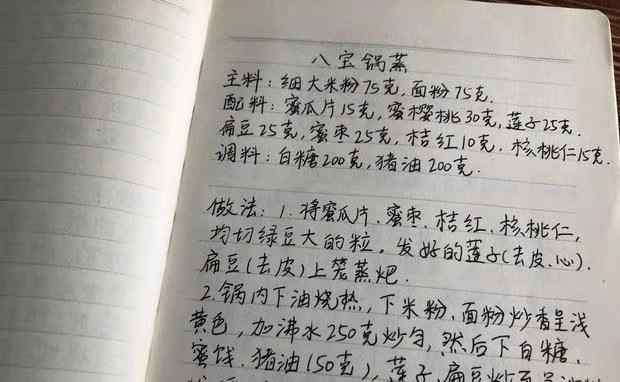 八宝锅蒸
主料:细大米粉75克,面粉75克.
配料:蜜瓜片15克,蜜樱桃30克,莲子25克.
扁豆25克,蜜枣25克,桔红10克.核桃仁15克.
调料:白糖200克,猪油200克.
做法:1.将蜜瓜片.蜜枣.桔红.核桃仁,
均切绿豆大的粒,发好的莲子(去皮.心).
扁豆(去皮)上笼蒸𤆵.
2.锅内下油烧热,下米粉.面粉炒香呈浅
黄色,加沸水250克炒匀,然后下白糖.
蜜饯.猪油(150克),莲子.扁豆炒至